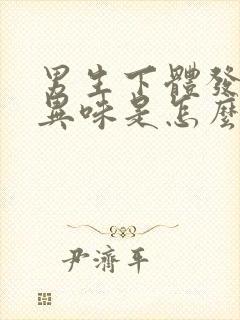 男生下體發
異味是怎麼
尹濟平